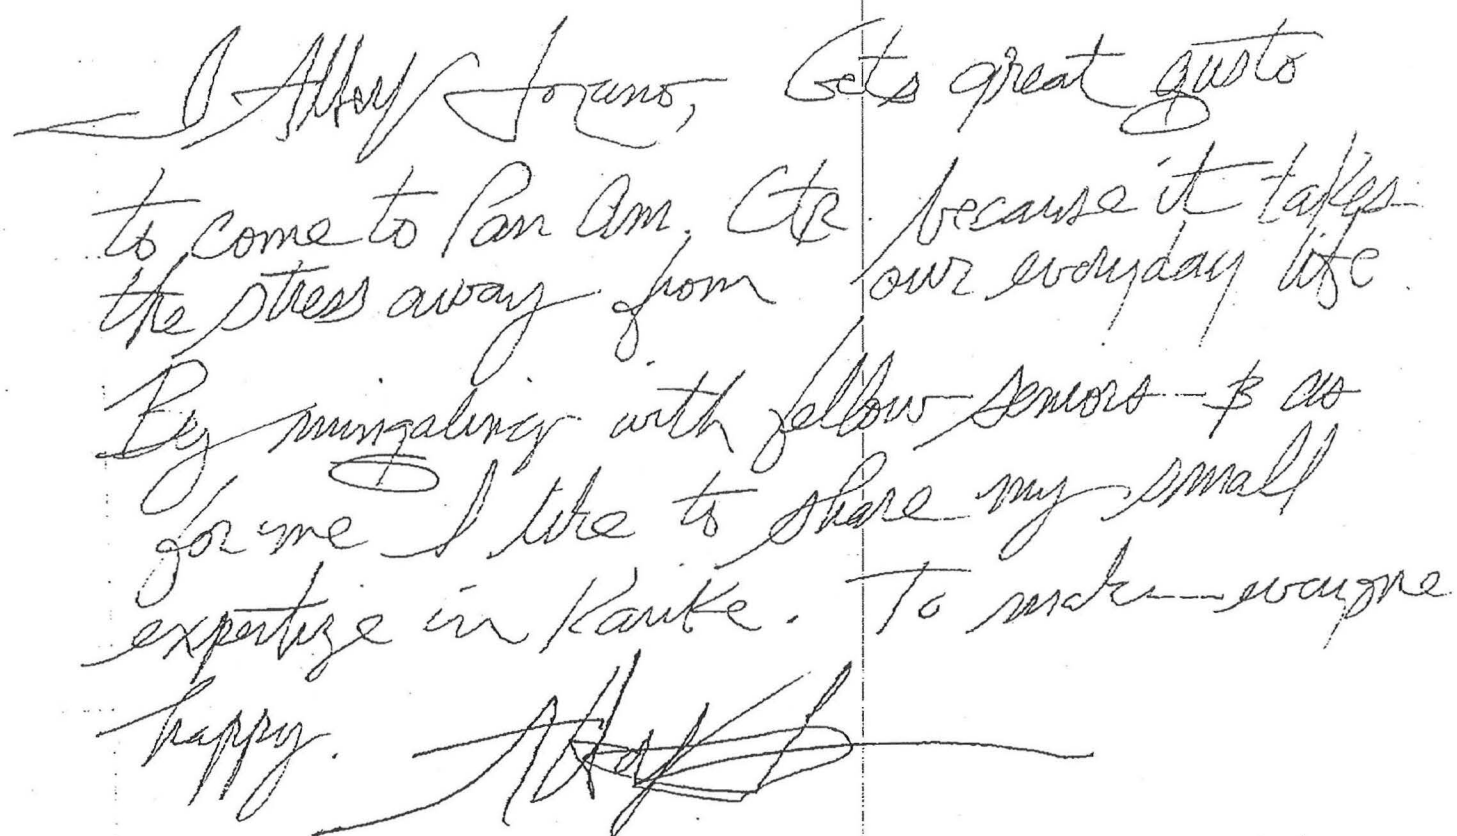 I Lozano, Gets great gusto
to come to Pan Am. Ctr. because it takes
the stress away from our everyday life.
By mingaling with fellow seniors - & as
for me I like to share my small
expertize in . To make everyone
happy.